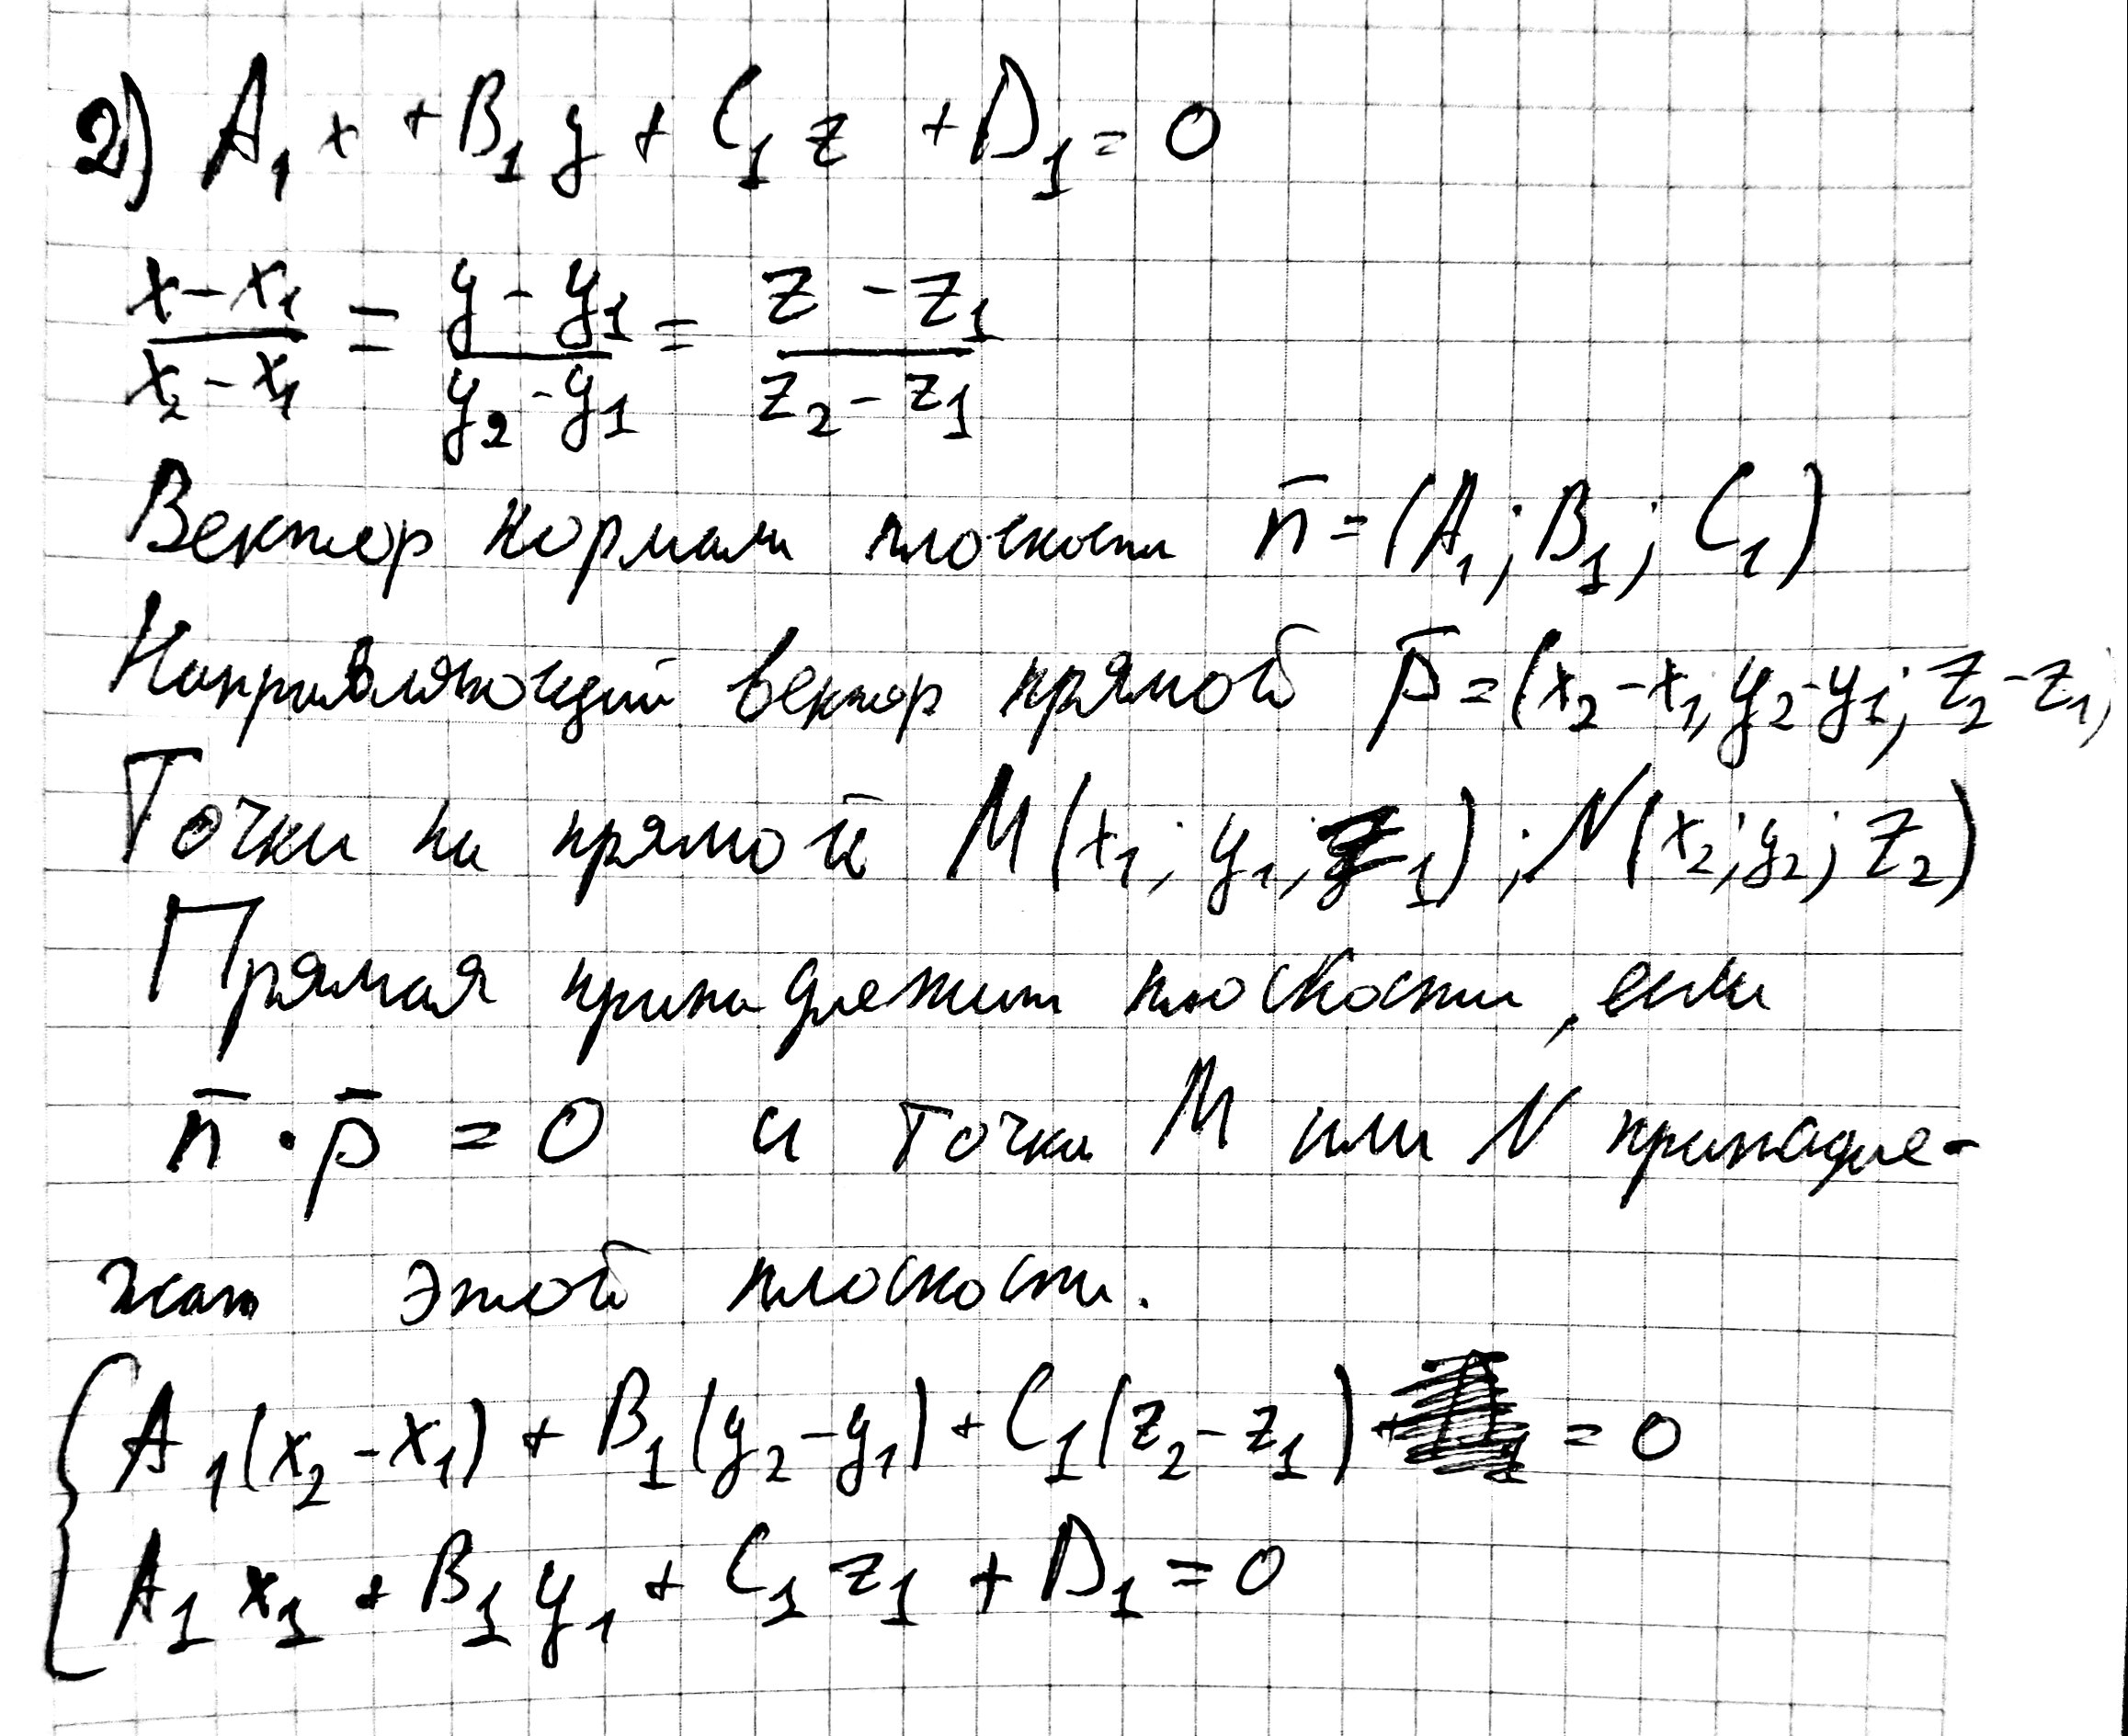 2) A₁x + B₁y + C₁z + D₁ = 0
(x - x₁)/(x₂ - x₁) = (y - y₁)/(y₂ - y₁) = (z - z₁)/(z₂ - z₁)
Вектор нормали плоскости n̄ = (A₁; B₁; C₁)
Направляющий вектор прямой p̄ = (x₂ - x₁; y₂ - y₁; z₂ - z₁)
Точки на прямой M(x₁; y₁; z₁); N(x₂; y₂; z₂)
Прямая принадлежит плоскости, если
n̄ · p̄ = 0 и точки M или N принадле-
жат этой плоскости.
{ A₁(x₂ - x₁) + B₁(y₂ - y₁) + C₁(z₂ - z₁) = 0
A₁x₁ + B₁y₁ + C₁z₁ + D₁ = 0